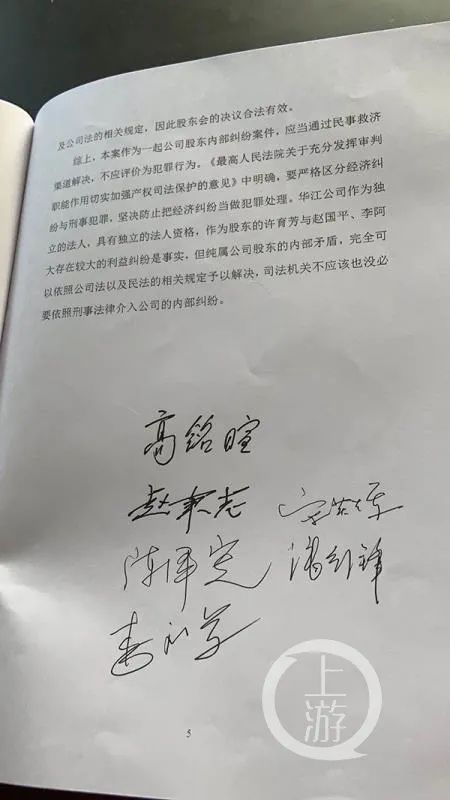 及公司法的相关规定，因此股东会的决议合法有效。
综上，本案作为一起公司股东内部纠纷案件，应当通过民事救济
渠道解决，不应评价为犯罪行为。《最高人民法院关于充分发挥审判
职能作用切实加强产权司法保护的意见》中明确，要严格区分经济纠
纷与刑事犯罪，坚决防止把经济纠纷当做犯罪处理。华江公司作为独
立的法人，具有独立的法人资格，作为股东的许育芳与赵国平、李阿
大存在较大的利益纠纷是事实，但纯属公司股东的内部矛盾，完全可
以依照公司法以及民法的相关规定予以解决，司法机关不应该也没必
要依照刑事法律介入公司的内部纠纷。
高铭暄
赵秉志
陈泽宪
5
上游